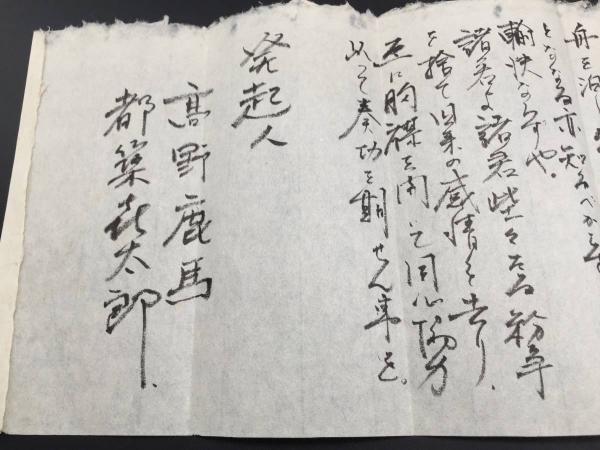 舟を泊し
となるなる亦知るべからず
愉快ならずや。
諸君よ諸君些々たる紛争
を捨て旧来の感情を去り、
互に胸襟を開いて同心協力
以て奏功を期せん事を。
発起人
高野鹿馬
都築喜太郎